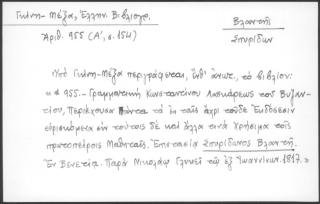 Γκίνη-Μέξα, Ελλην. Βιβλιογρ.
Ἀριθ. 955 (Α', σ. 154)
Βλαντῆς
Σπυρίδων
Ὑπὸ Γκίνη-Μέξα περιγράφεται, ὑπ' ἀριθ., τὸ βιβλίον:
« 955.- Γραμματικὴ Κωνσταντίνου Λασκάρεως τοῦ Βυζαν-
τίου, Περιέχουσα πάντα τὰ ἐν ταῖς ἄχρι τοῦδε Ἐκδόσεσιν
εὑρισκόμενα ἐν ταύταις δὲ καὶ ἄλλα τινὰ χρήσιμα τοῖς
πρωτοπείροις Μαθηταῖς. Ἐπιστασίᾳ Σπυρίδωνος Βλαντῆ.
Ἐν Βενετίᾳ. Παρὰ Νικολάῳ Γλυκεῖ τῷ ἐξ Ἰωαννίνων. 1817.»